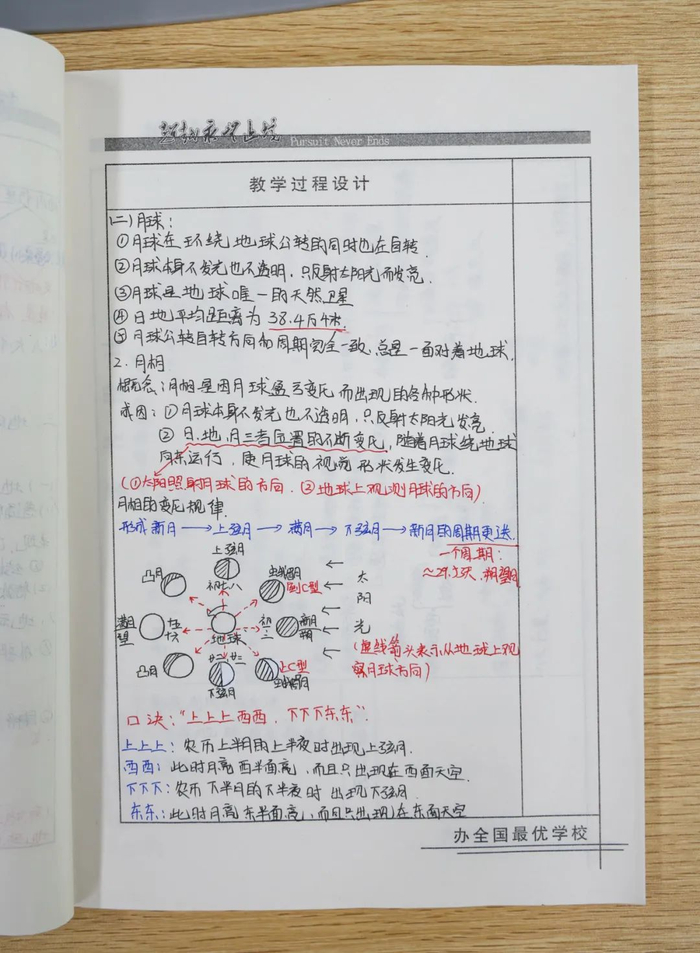 Pursuit Never Ends
教学过程设计
(二)月球:
①月球在环绕地球公转的同时也在自转.
②月球本身不发光也不透明,只反射太阳光而发亮.
③月球是地球唯一的天然卫星
④日地平均距离为38.4万千米.
⑤月球公转自转方向和周期完全一致,总是一面对着地球.
2.月相
概念:月相是因月球盈亏变化而出现的各种形状.
成因:①月球本身不发光也不透明,只反射太阳光发亮.
②日、地、月三者位置的不断变化,随着月球绕地球
向东运行,使月球的视觉形状发生变化.
(①太阳照射月球的方向.②地球上观测月球的方向)
月相的变化规律.
形成新月→上弦月→满月→下弦月→新月的周期更迭.
一个周期:
≈29.5天.朔望月
上弦月
凸月
初七八
蛾眉月
反C型
太
阳
光
满月
望
十五
十六
地球
初一
新月
朔
(虚线箭头表示从地球上观
察月球方向)
凸月
廿二 廿三
下弦月
正C型
蛾眉月
口诀:"上上上西西,下下下东东".
上上上:农历上半月的上半夜时出现上弦月.
西西:此时月亮西半面亮,而且只出现在西面天空.
下下下:农历下半月的下半夜时出现下弦月.
东东:此时月亮东半面亮,而且只出现在东面天空
办全国最优学校